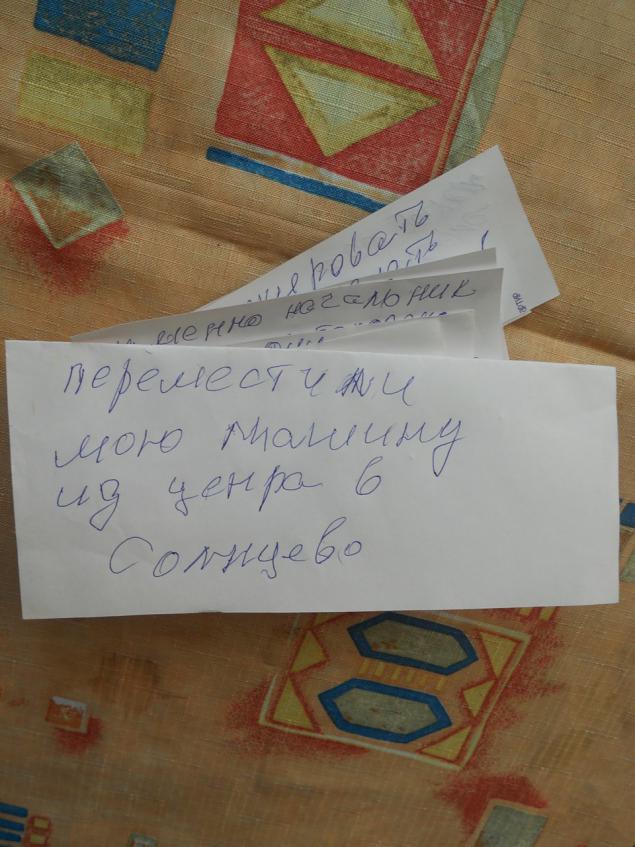 именно начальник
переместили
мою машину
из ценра в
Солнцево